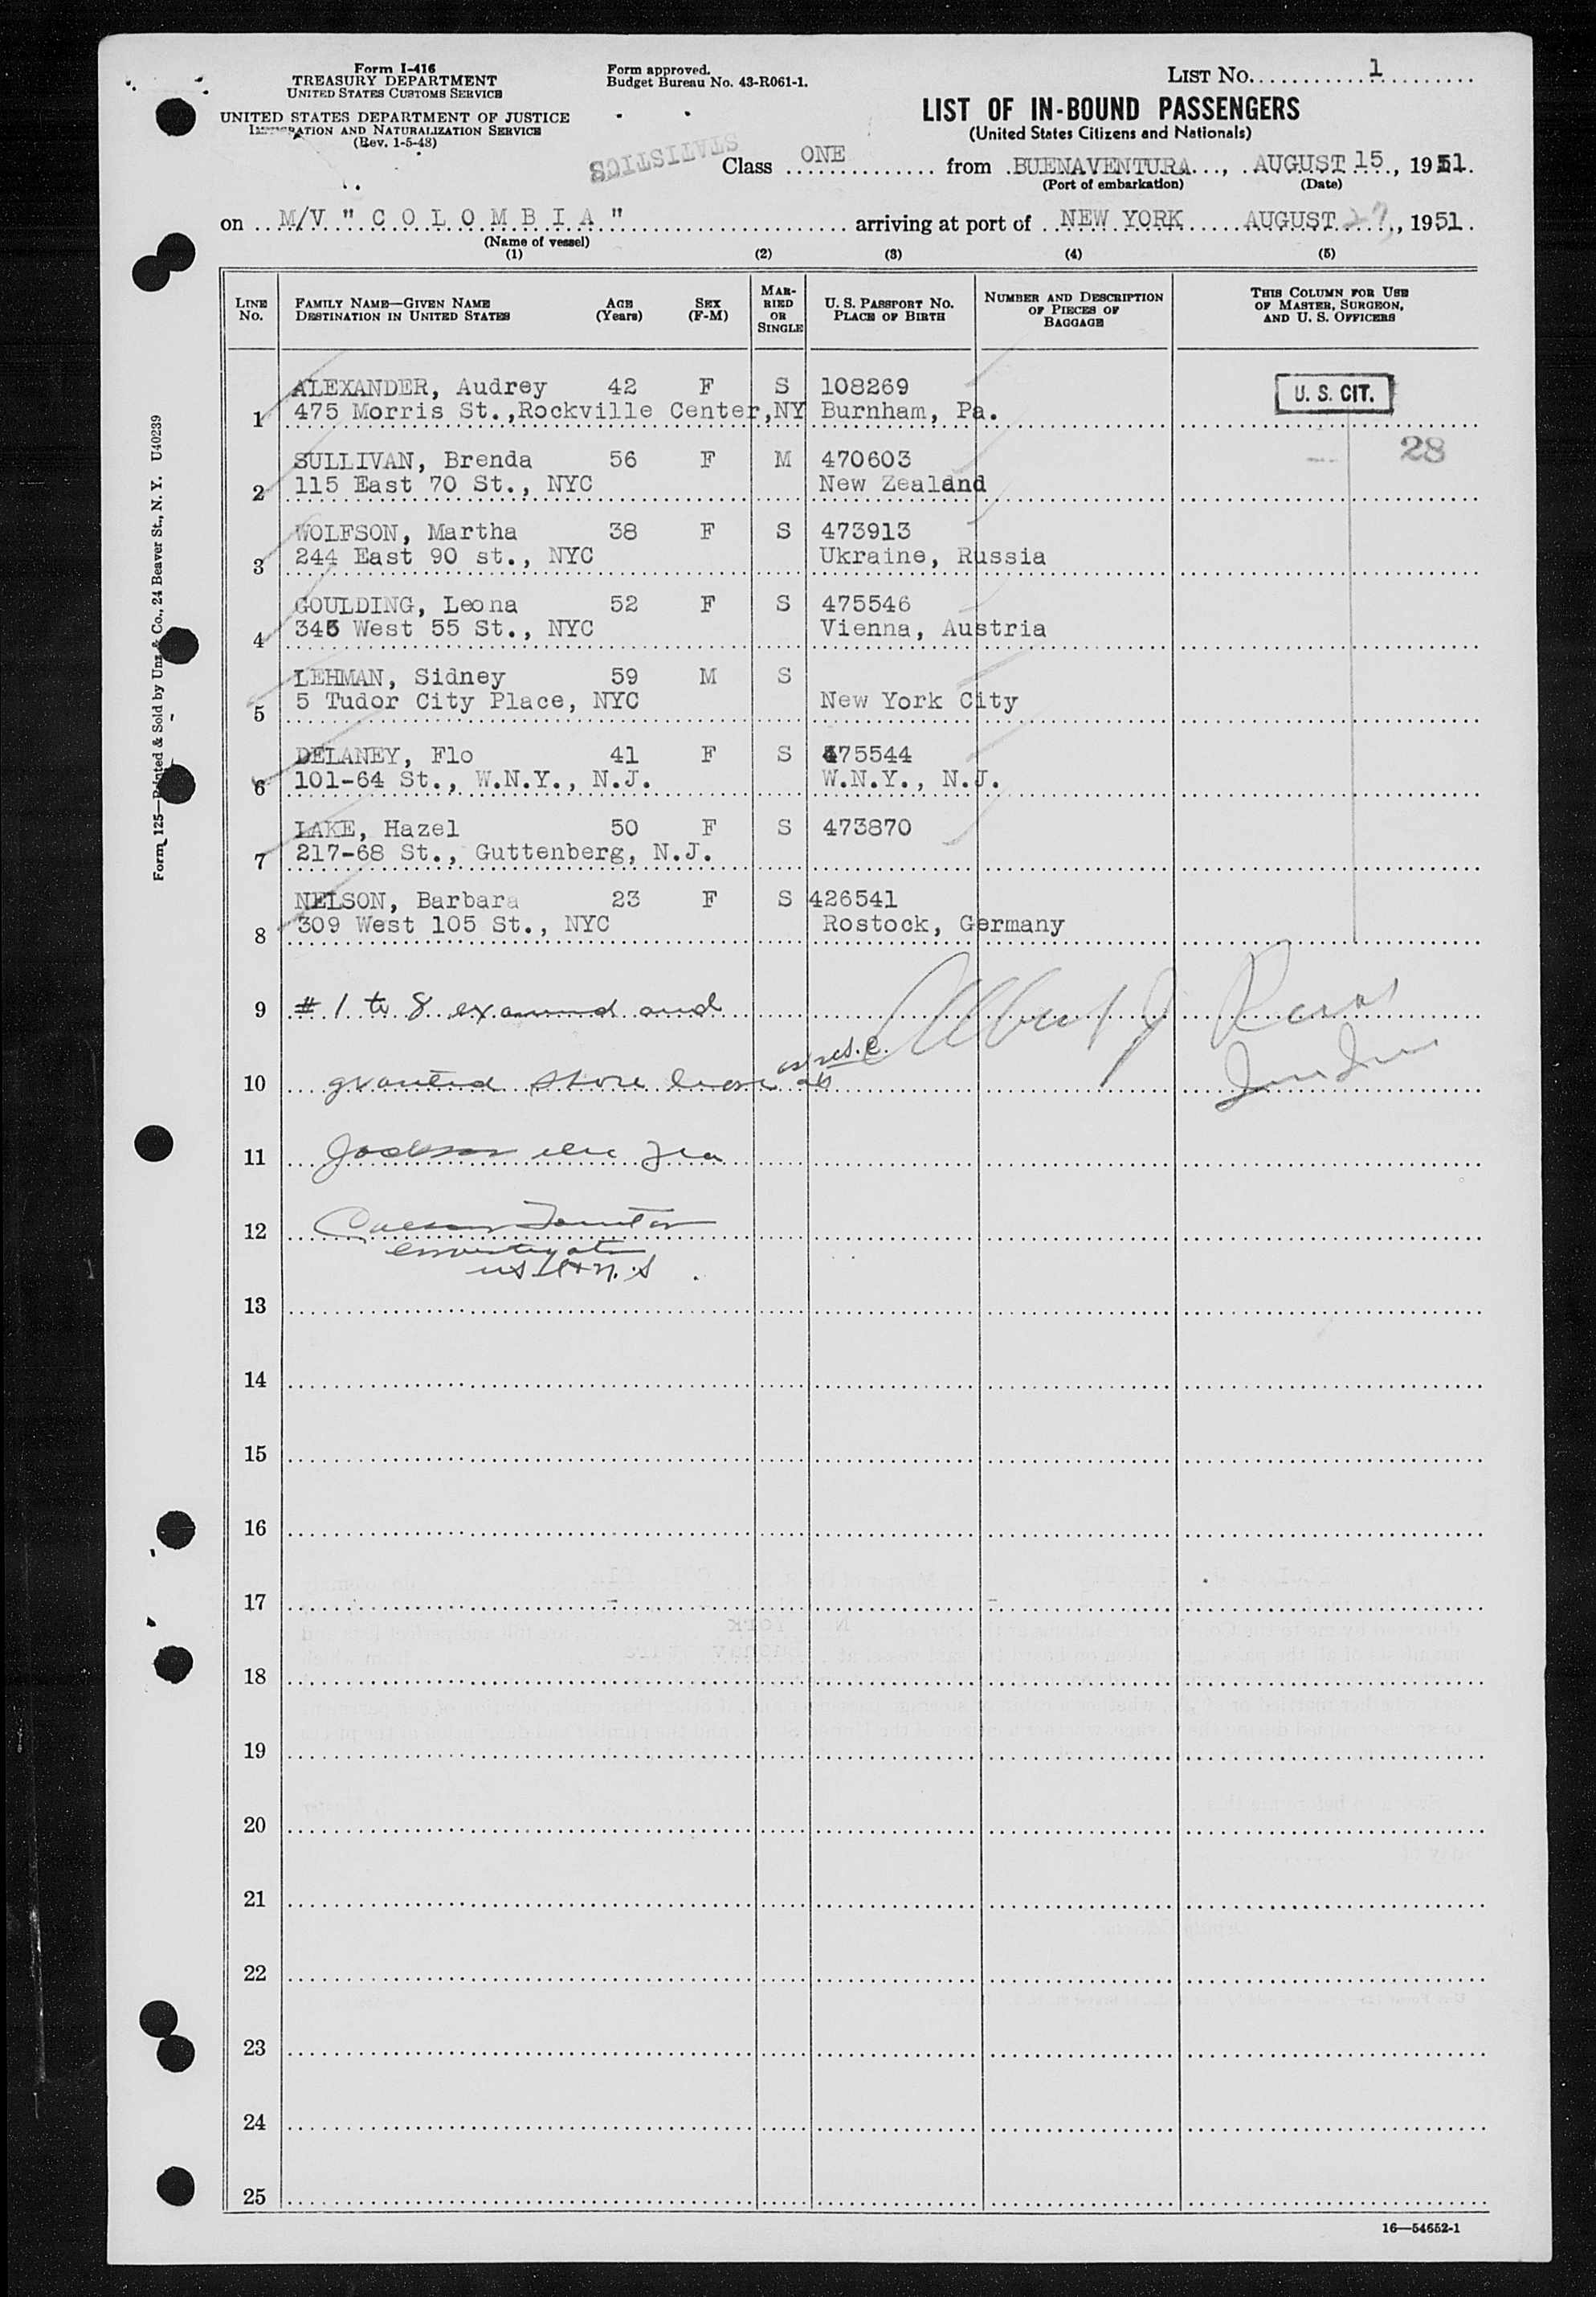 Form I-416
TREASURY DEPARTMENT
UNITED STATES CUSTOMS SERVICE
UNITED STATES DEPARTMENT OF JUSTICE
IMMIGRATION AND NATURALIZATION SERVICE
(Rev. 1-5-48)
Form approved.
Budget Bureau No. 43-R061-1.
LIST NO. 1
LIST OF IN-BOUND PASSENGERS
(United States Citizens and Nationals)
STATISTICS
Class ONE from BUENAVENTURA, AUGUST 15, 1951.
(Port of embarkation) (Date)
on M/V "C O L O M B I A" arriving at port of NEW YORK AUGUST 27, 1951.
(Name of vessel)
(1) (2) (3) (4) (5)
LINE No.
FAMILY NAME—GIVEN NAME
DESTINATION IN UNITED STATES
AGE (Years)
SEX (F-M)
MARRIED OR SINGLE
U. S. PASSPORT NO.
PLACE OF BIRTH
NUMBER AND DESCRIPTION OF PIECES OF BAGGAGE
THIS COLUMN FOR USE OF MASTER, SURGEON, AND U. S. OFFICERS
ALEXANDER, Audrey 42 F S 108269 U. S. CIT.
1 475 Morris St.,Rockville Center,NY Burnham, Pa.
SULLIVAN, Brenda 56 F M 470603 28
2 115 East 70 St., NYC New Zealand
WOLFSON, Martha 38 F S 473913
3 244 East 90 st., NYC Ukraine, Russia
GOULDING, Leona 52 F S 475546
4 345 West 55 St., NYC Vienna, Austria
LEHMAN, Sidney 59 M S
5 5 Tudor City Place, NYC New York City
DELANEY, Flo 41 F S 475544
6 101-64 St., W.N.Y., N.J. W.N.Y., N.J.
LAKE, Hazel 50 F S 473870
7 217-68 St., Guttenberg, N.J.
NELSON, Barbara 23 F S 426541
8 309 West 105 St., NYC Rostock, Germany
9 # 1 to 8 examined and
10 granted shore leave as
11 Jacksonville Fla
12
US I & N. S
13
14
15
16
17
18
19
20
21
22
23
24
25
16—54652-1
Form 125—Printed & Sold by Unz & Co., 24 Beaver St., N. Y. U40239